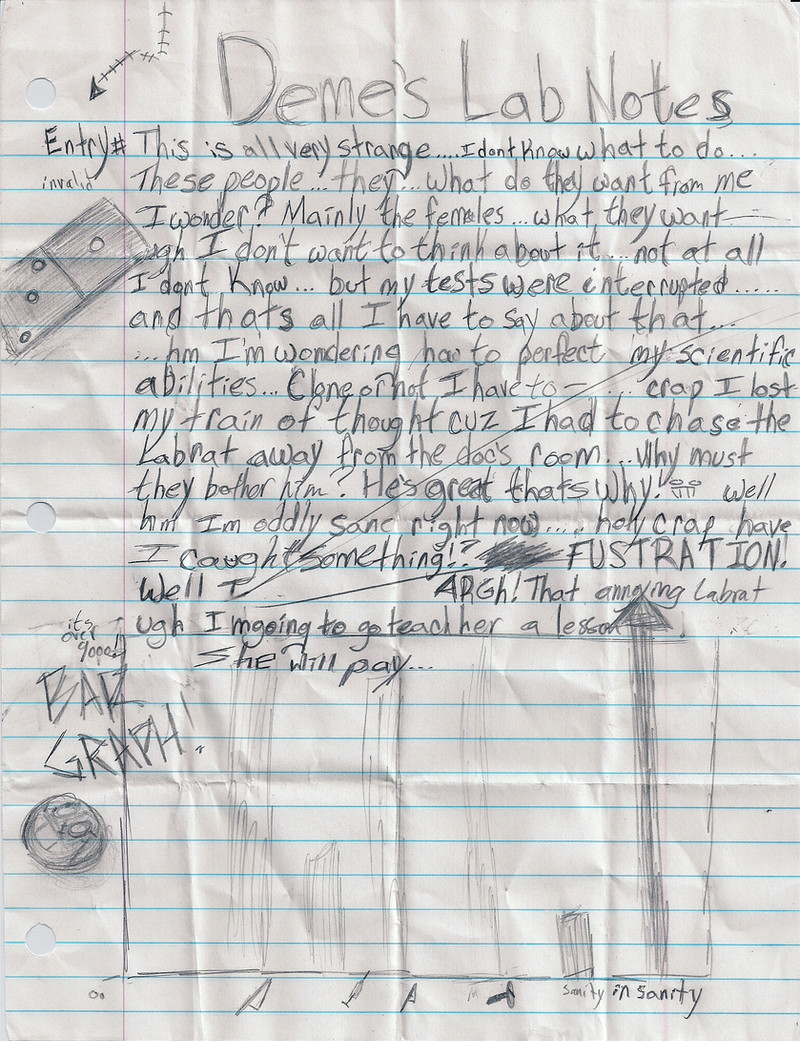 Deme's Lab Notes
Entry# This is all very strange....I dont know what to do...
invalid These people...they?..what do they want from me
I wonder? Mainly the females...what they want—
ugh I don't want to think about it...not at all
I dont know... but my tests were interrupted.....
and thats all I have to say about that...
...hm I'm wondering how to perfect my scientific
abilities... Clone or not I have to — .... crap I lost
my train of thought cuz I had to chase the
Labrat away from the doc's room...Why must
they bother him? He's great thats why! well
hm Im oddly sane right now..... holy crap have
I caught something!? FUSTRATION!
Well I
ARGH! That annoying Labrat
ugh I'mgoing to go teach her a lesson
She will pay...
its
over
9000!!
BAR
GRAPH!
sanity insanity